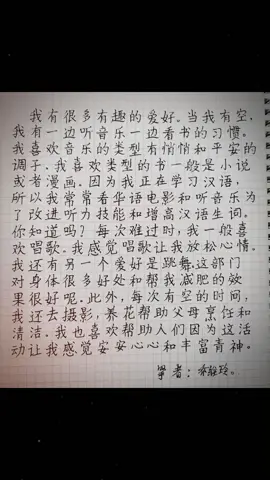 我有很多有趣的爱好。当我有空,
我有一边听音乐一边看书的习惯。
我喜欢音乐的类型有悄悄和平安的
调子。我喜欢类型的书一般是小说
或者漫画。因为我正在学习汉语,
所以我常常看华语电影和听音乐为
了改进听力技能和增高汉语生词。
你知道吗?每次难过时,我一般喜
欢唱歌。我感觉唱歌让我放松心情。
我还有另一个爱好是跳舞这部门
对身体很多好处和帮我减肥的效
果很好呢。此外,每次有空的时间,
我还去摄影,养花帮助父母烹饪和
清洁。我也喜欢帮助人们因为这活
动让我感觉安安心心和丰富青神。
者:
玲。